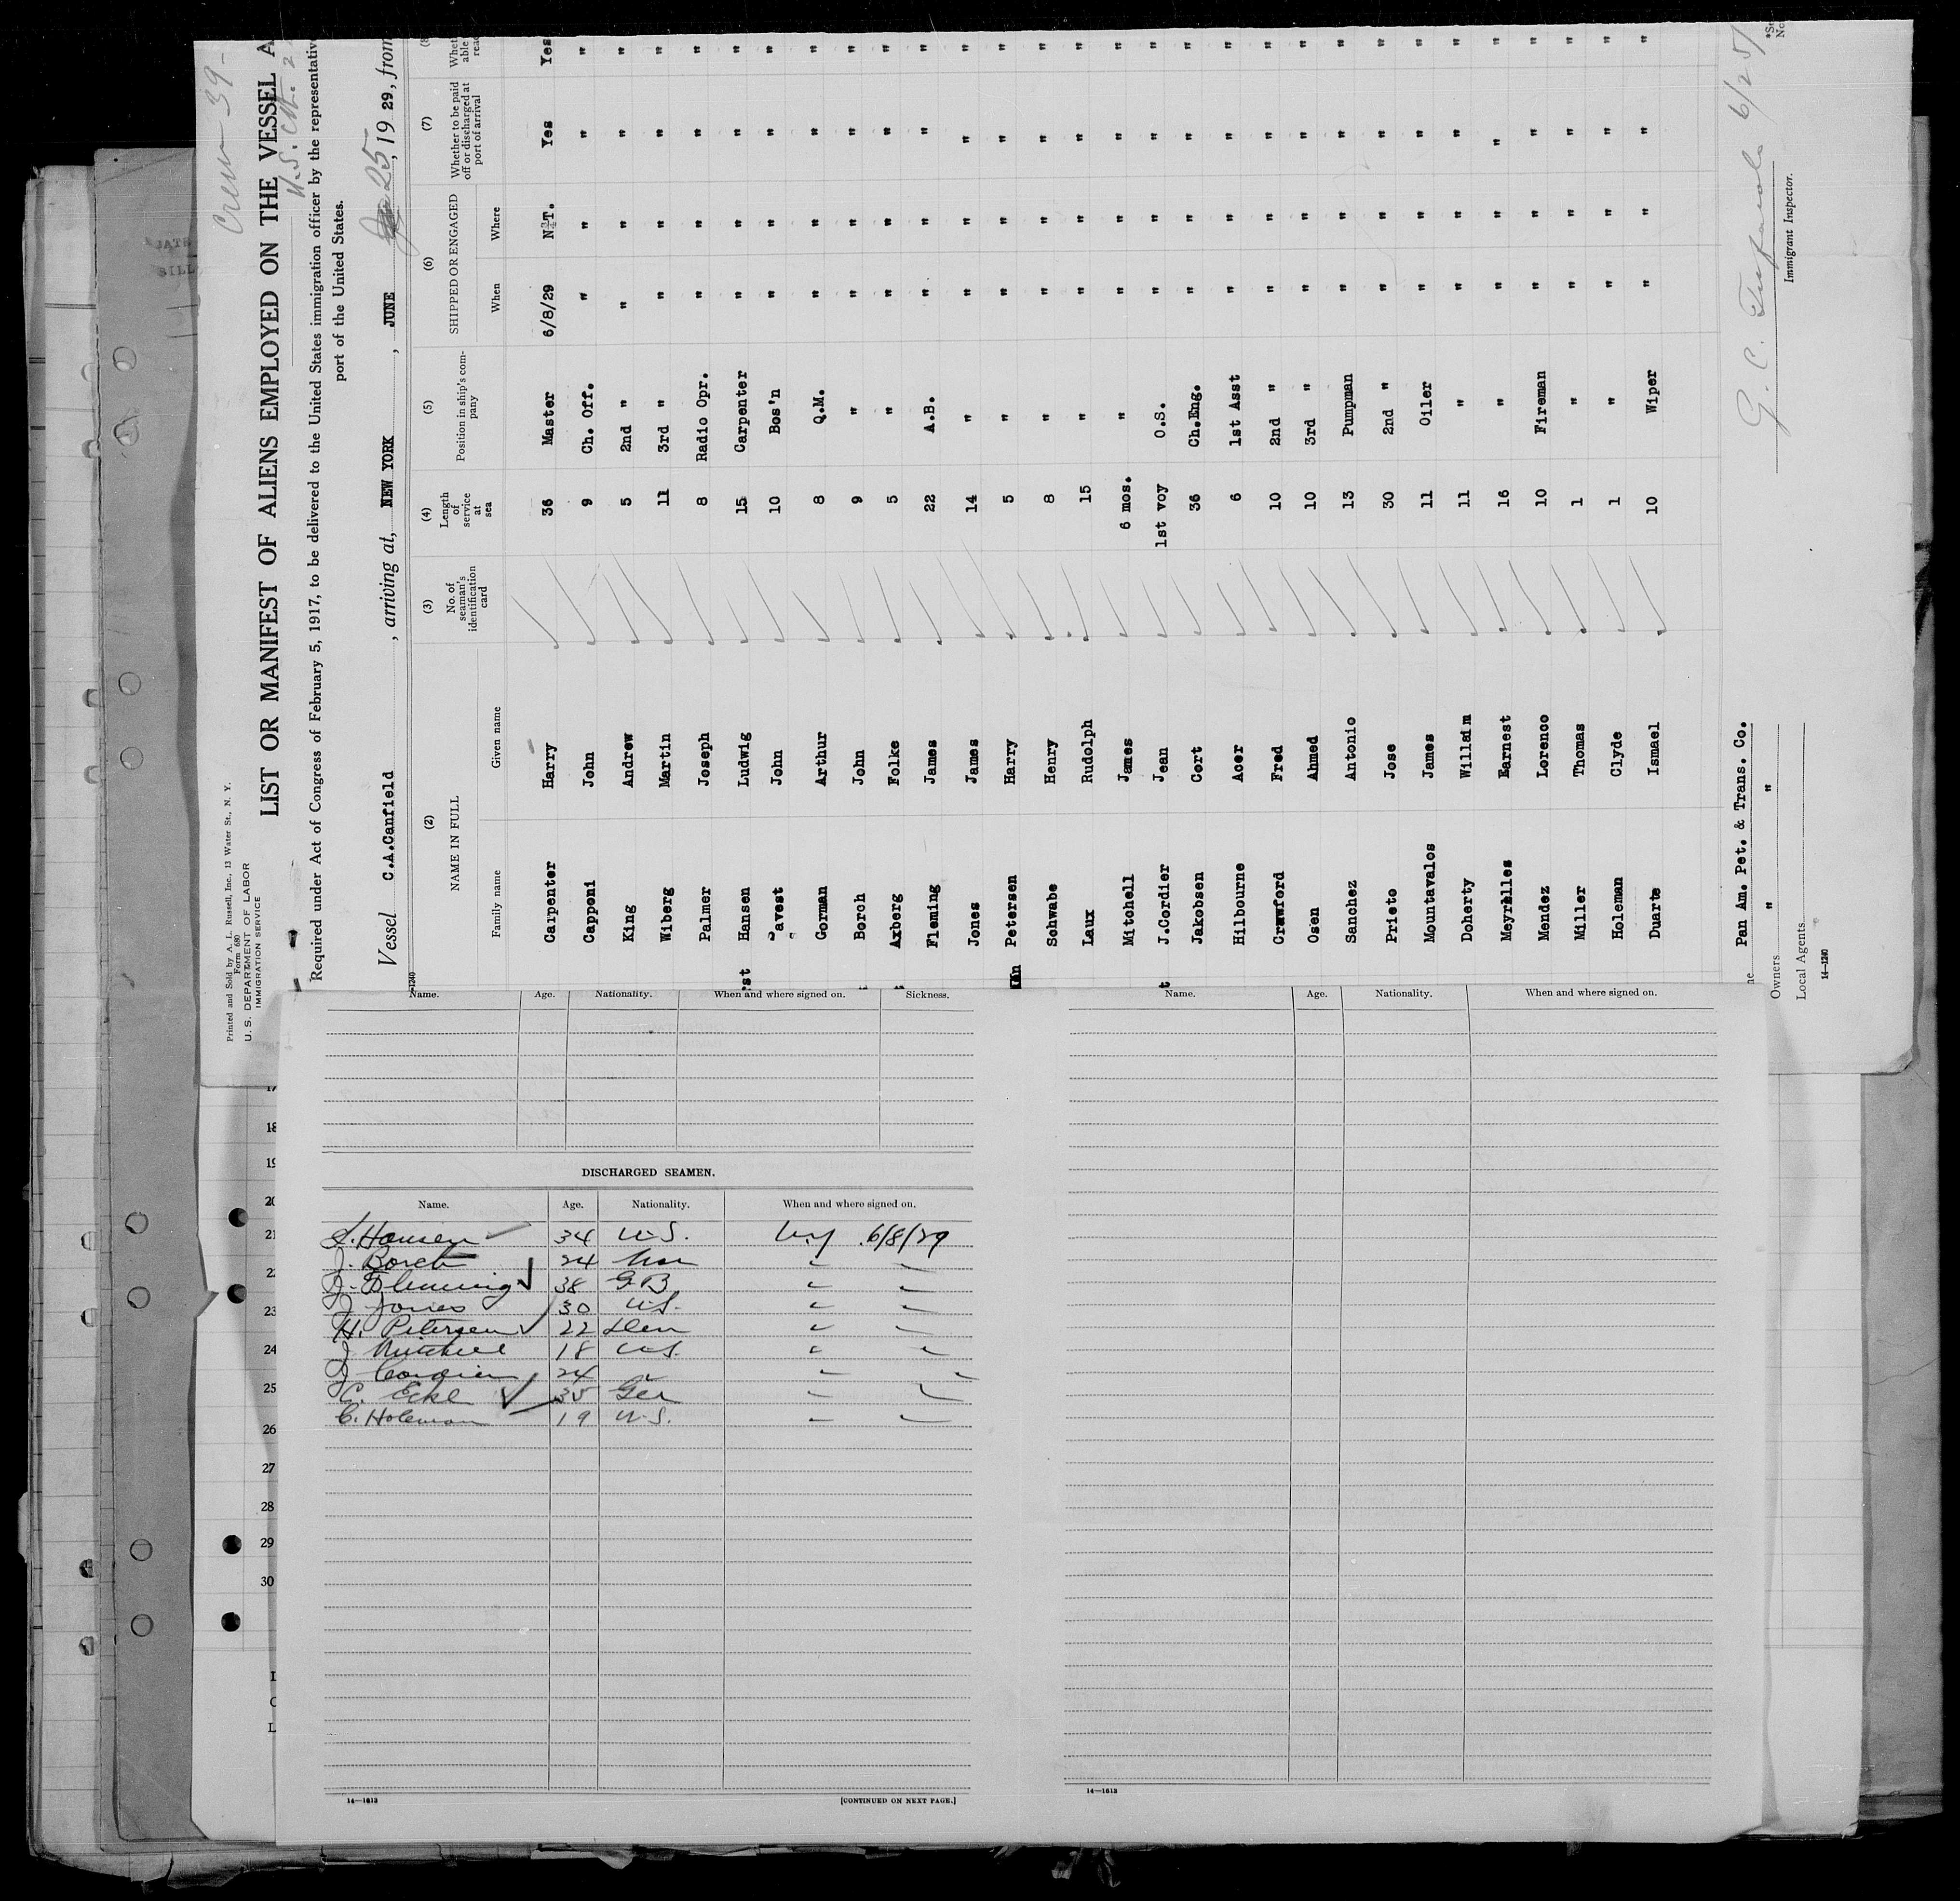 Crew 39-
Printed and Sold by A. L. Russell, Inc., 13 Water St., N. Y.
Form 680
U. S. DEPARTMENT OF LABOR
IMMIGRATION SERVICE
LIST OR MANIFEST OF ALIENS EMPLOYED ON THE VESSEL A
Required under Act of Congress of February 5, 1917, to be delivered to the United States immigration officer by the representative
port of the United States.
Vessel C.A.Canfield , arriving at, NEW YORK , JUNE 25 , 19 29, from
(2) NAME IN FULL (3) No. of seaman's identification card (4) Length of service at sea (5) Position in ship's company (6) SHIPPED OR ENGAGED (7) Whether to be paid off or discharged at port of arrival (8)
Family name Given name When Where
Carpenter Harry 36 Master 6/8/29 N.Y. Yes Yes
Capponi John 9 Ch. Off. " " " "
King Andrew 5 2nd " " " " "
Wiberg Martin 11 3rd " " " " "
Palmer Joseph 8 Radio Opr. " " " "
Hansen Ludwig 15 Carpenter " " " "
avest John 10 Bos'n " " " "
Gorman Arthur 8 Q.M. " " " "
Borch John 9 " " " " "
Axberg Folke 5 " " " " "
Fleming James 22 A.B. " " " "
Jones James 14 " " " " "
Petersen Harry 5 " " " " "
Schwabe Henry 8 " " " " "
Laux Rudolph 15 " " " " "
Mitchell James 6 mos. " " " " "
J.Cordier Jean 1st voy O.S. " " " "
Jakobsen Cert 36 Ch.Eng. " " " "
Hilbourne Acer 6 1st Asst " " " "
Crawford Fred 10 2nd " " " " "
Osen Ahmed 10 3rd " " " " "
Sanchez Antonio 13 Pumpman " " " "
Prieto Jose 30 2nd " " " " "
Mountavalos James 11 Oiler " " " "
Doherty Willaim 11 " " " " "
Meyrelles Earnest 16 " " " " "
Mendez Lorenco 10 Fireman " " " "
Miller Thomas 1 " " " " "
Holeman Clyde 1 " " " " "
Duarte Ismael 10 Wiper " " " "
Pan Am. Pet. & Trans. Co.
Owners " "
Local Agents
14-1240
6/25/
Immigrant Inspector.
Name. Age. Nationality. When and where signed on. Sickness.
DISCHARGED SEAMEN.
Name. Age. Nationality. When and where signed on.
L. Hansen 34 U.S. N.Y 6/8/29
J. Borch 24 Nor " "
J. Flemming 38 G.B. " "
J. Jones 30 U.S. " "
H. Petersen 22 Den " "
J. Mitchell 18 U.S. " "
J. Cordier 24 " " "
C. Eckl 35 Ger " "
C. Holeman 19 U.S. " "
14—1613
[CONTINUED ON NEXT PAGE.]
Name. Age. Nationality. When and where signed on.
14—1613
17
18
19
20
21
22
23
24
25
26
27
28
29
30